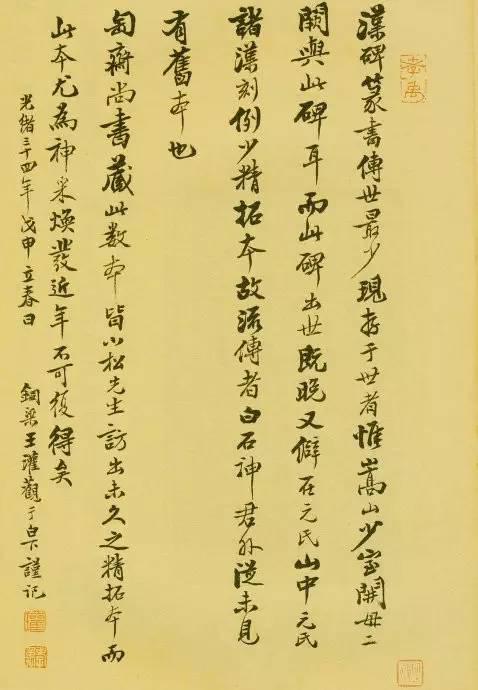 漢碑篆書傳世最少現存于世者惟嵩山少室開母二
闕與此碑耳而此碑出世既晚又僻在元氏山中元氏
諸漢刻例少精拓本故流傳者白石神君外從未見
有舊本也
匋齋尚書藏此數本皆小松先生訪出未久之精拓本而
此本尤為神采煥發近年不可復得矣
光緒三十四年戊申立春日
銅梁王瓘觀于白下謹記